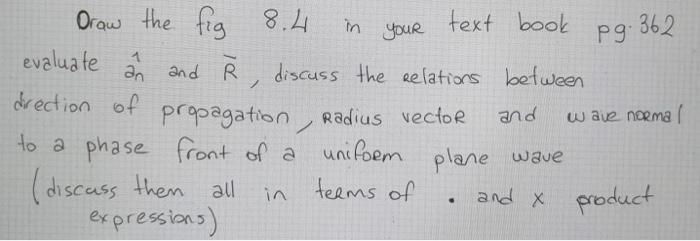 Draw the fig 8.4 in your text book pg. 362
evaluate ân and R̄, discuss the relations between
direction of propagation, Radius vector and wave normal
to a phase front of a uniform plane wave
(discuss them all in terms of . and x product
expressions)